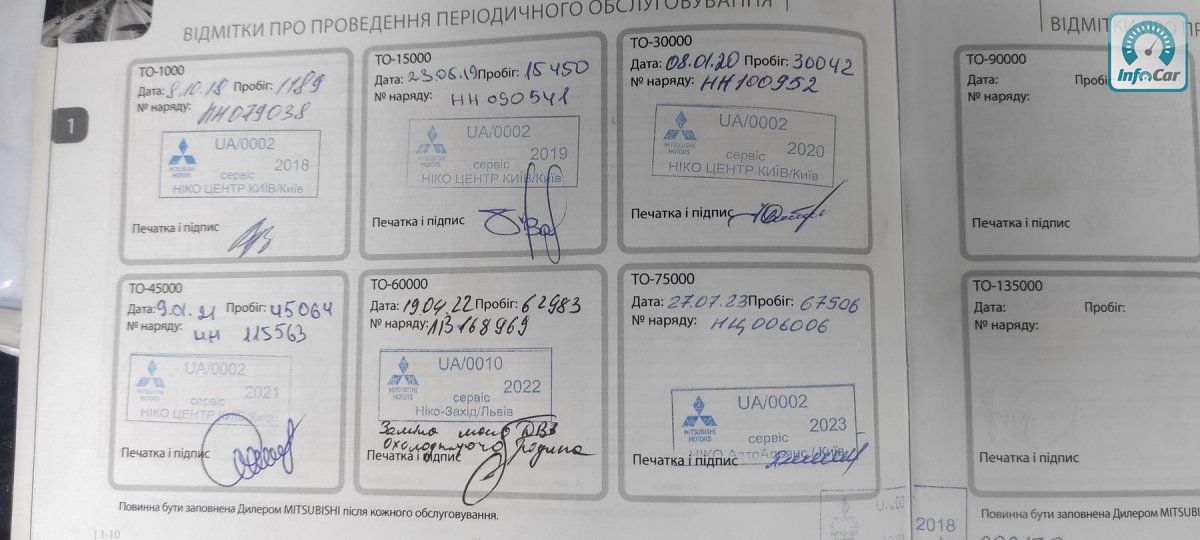 ВІДМІТКИ ПРО ПРОВЕДЕННЯ ПЕРІОДИЧНОГО ОБСЛУГОВУВАННЯ
1
ТО-1000
Дата: 8.10.18 Пробіг: 1189
№ наряду:
НН079038
UA/0002
MITSUBISHI MOTORS
2018
сервіс
НІКО ЦЕНТР КИЇВ/Київ
Печатка і підпис
ТО-15000
Дата: 23.05.19 Пробіг: 15450
№ наряду: НН090541
UA/0002
MITSUBISHI MOTORS
2019
сервіс
НІКО ЦЕНТР КИЇВ/Київ
Печатка і підпис
ТО-30000
Дата: 08.01.20 Пробіг: 30042
№ наряду: НН100952
UA/0002
MITSUBISHI MOTORS
2020
сервіс
НІКО ЦЕНТР КИЇВ/Київ
Печатка і підпис
ТО-45000
Дата: 9.01.21 Пробіг: 45064
№ наряду: НН 115563
UA/0002
MITSUBISHI MOTORS
2021
сервіс
НІКО ЦЕНТР КИЇВ/Київ
Печатка і підпис
ТО-60000
Дата: 19.04.22 Пробіг: 62983
№ наряду: ЛВ168969
UA/0010
MITSUBISHI MOTORS
2022
сервіс
Ніко-Захід/Львів
Заміна масо ДВЗ
Охолоджуюча Рідина
Печатка і підпис
ТО-75000
Дата: 27.07.23 Пробіг: 67506
№ наряду: НЦ006006
UA/0002
MITSUBISHI MOTORS
2023
сервіс
Київ
Печатка і підпис
Повинна бути заповнена Дилером MITSUBISHI після кожного обслуговування.
1-10
2018
ВІДМІТКИ ПРО
InfoCar
ТО-90000
Дата:
№ наряду:
Печатка і підпис
ТО-135000
Дата: Пробіг:
№ наряду:
Печатка і підпис
Повинна бути заповнена Дилером